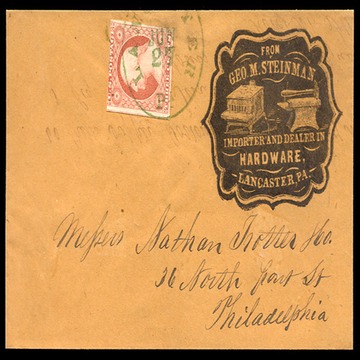 FROM
GEO. M. STEINMAN
IMPORTER AND DEALER IN
HARDWARE,
LANCASTER, PA.
23
Messrs Nathan Trotter & Co.
36 North Front St
Philadelphia